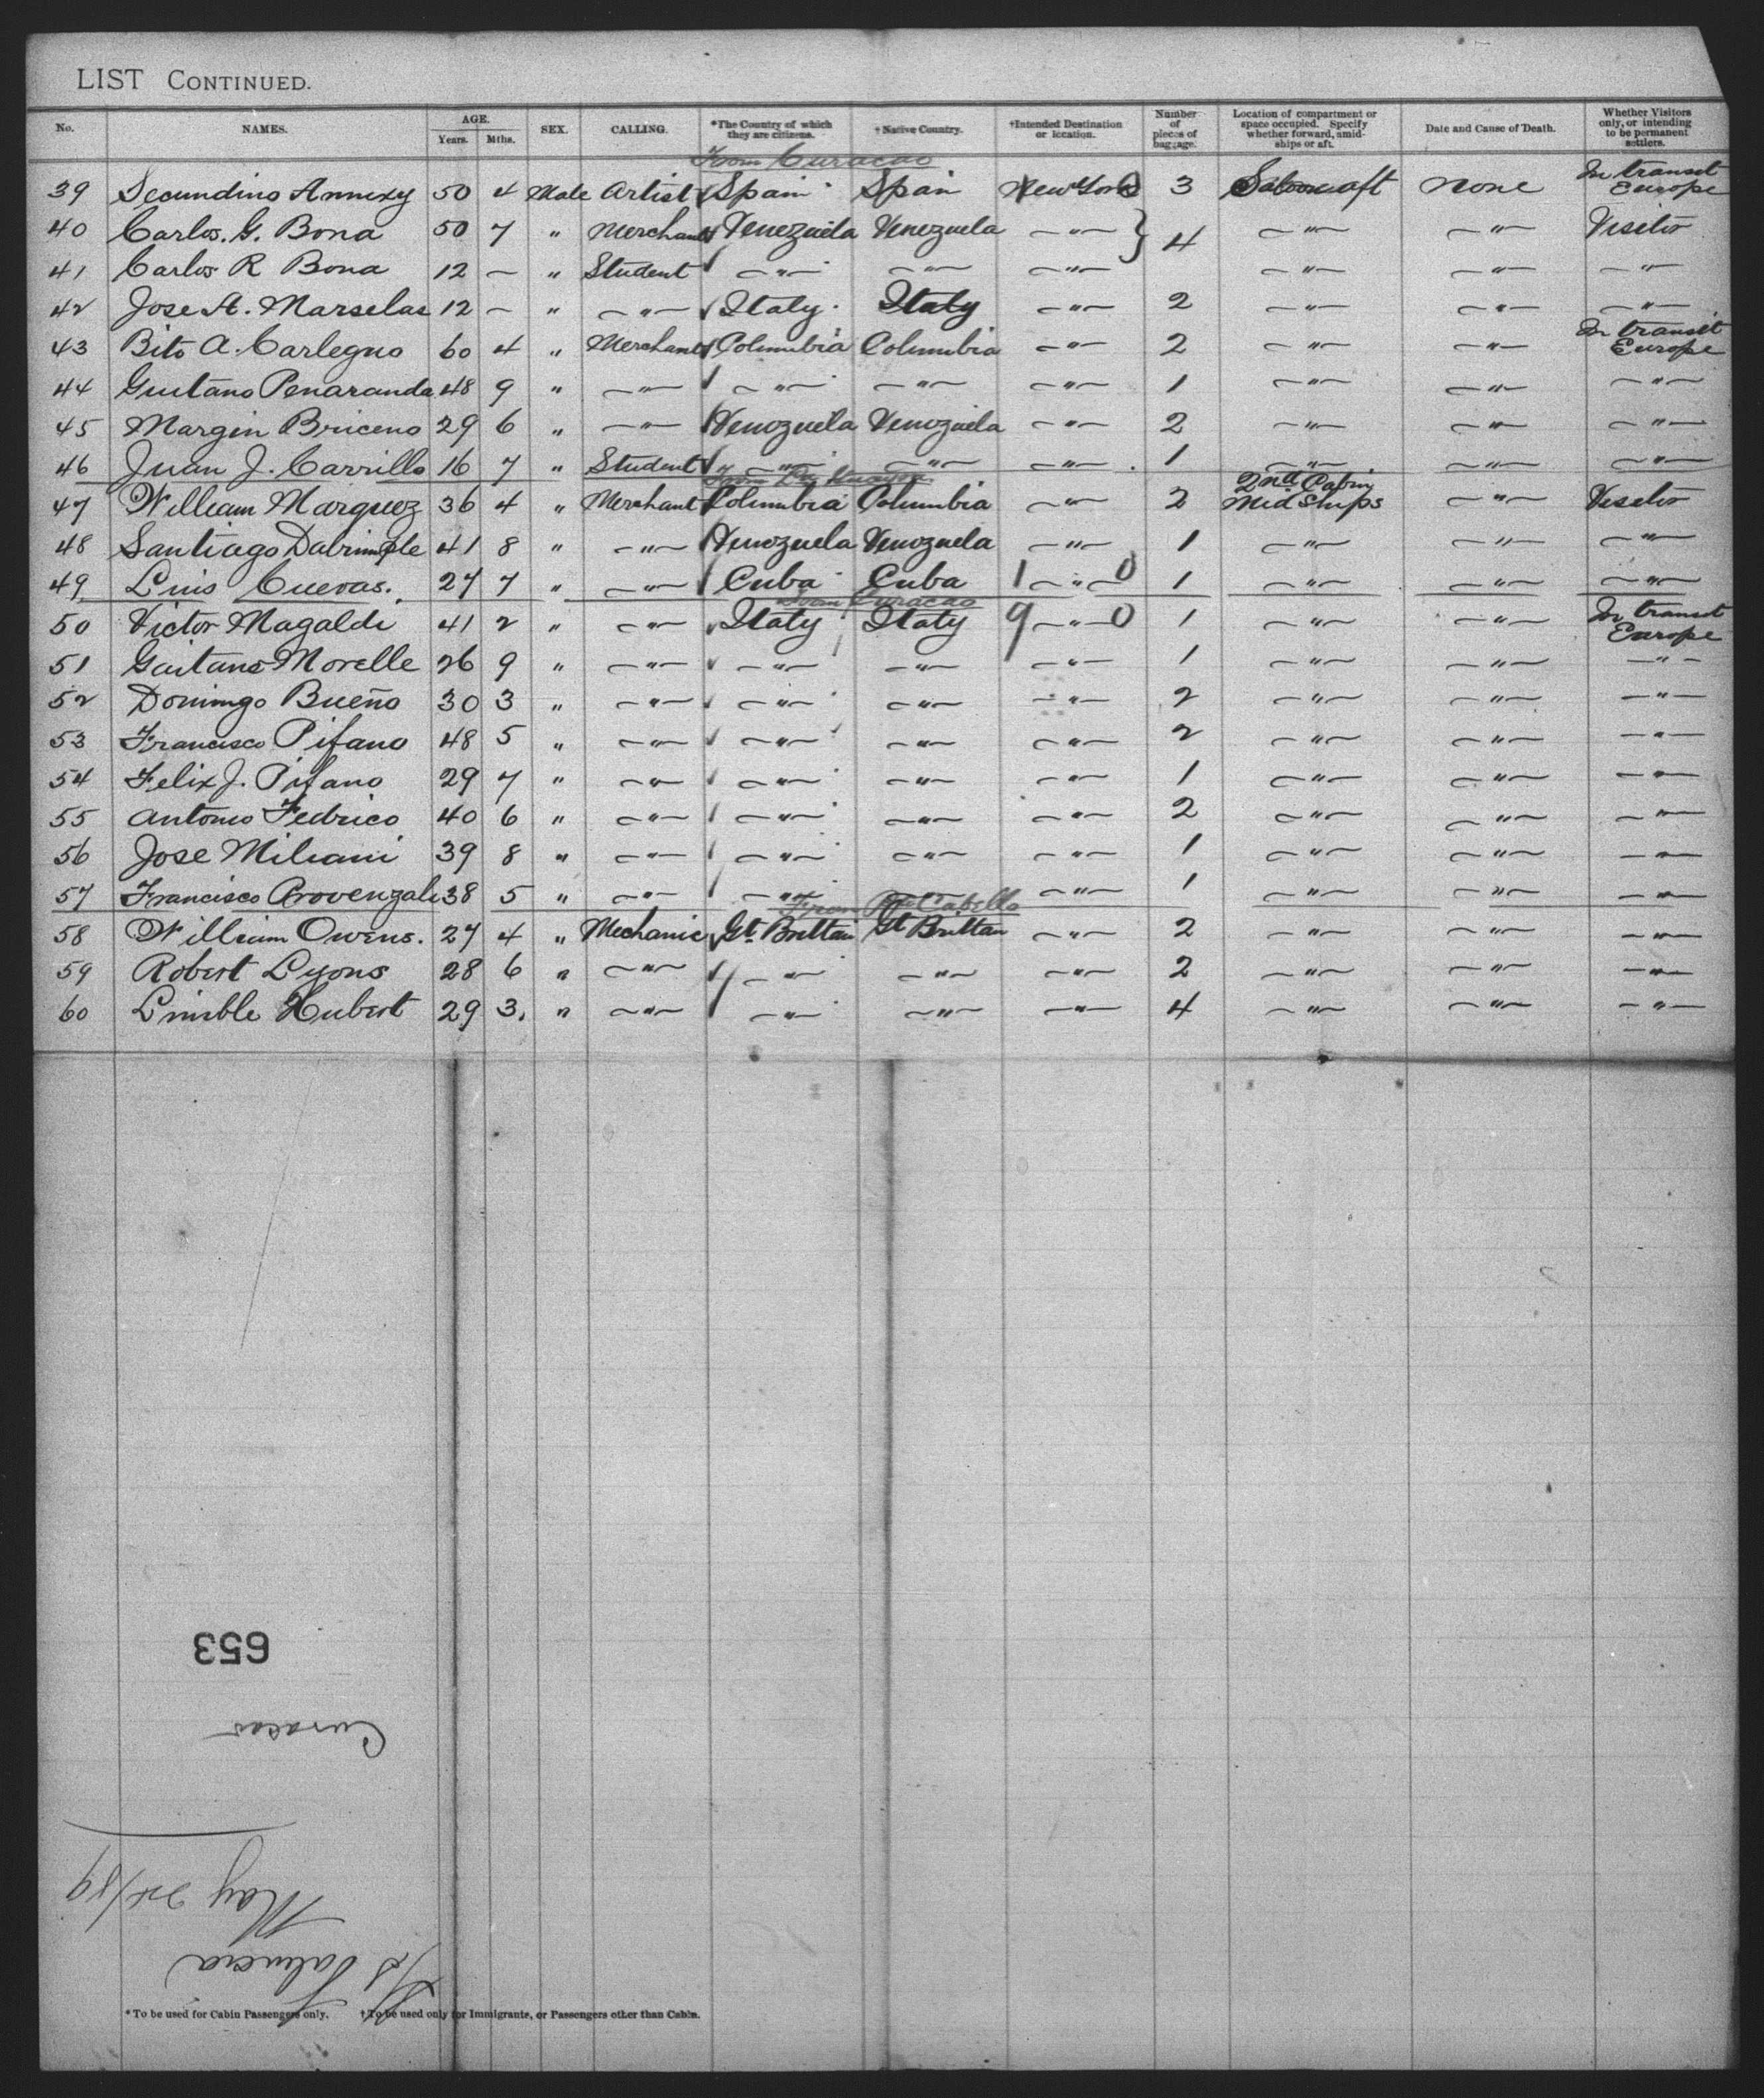 LIST CONTINUED.
No. NAMES. AGE. Years. Mths. SEX. CALLING. *The Country of which they are citizens. †Native Country. †Intended Destination or location. Number of pieces of baggage. Location of compartment or space occupied. Specify whether forward, amidships or aft. Date and Cause of Death. Whether Visitors only, or intending to be permanent settlers.
From Curacao
39 Secundino Annexy 50 4 Male Artist Spain Spain New York 3 Saloon aft None In transit Europe
40 Carlos. G. Bona 50 7 " Merchant Venezuela Venezuela —"— } 4 —"— —"— Visitor
41 Carlos R Bona 12 — " Student —"— —"— —"— —"— —"— —"—
42 Jose A. Marselas 12 — " —"— Italy Italy —"— 2 —"— —"— —"—
43 Bito A. Carlegno 60 4 " Merchant Columbia Columbia —"— 2 —"— —"— In transit Europe
44 Guitano Penaranda 48 9 " —"— —"— —"— —"— 1 —"— —"— —"—
45 Margin Briceno 29 6 " —"— Venezuela Venezuela —"— 2 —"— —"— —"—
46 Juan J. Carrillo 16 7 " Student —"— —"— —"— 1 —"— —"— —"—
47 William Marquez 36 4 " Merchant Columbia Columbia —"— 2 2nd Cabin Mid Ships —"— Visitor
48 Santiago Dalrimple 41 8 " —"— Venezuela Venezuela —"— 1 —"— —"— —"—
49 Luis Cuevas. 27 7 " —"— Cuba Cuba 1 —"— 0 1 —"— —"— —"—
From Curacao
50 Victor Magaldi 41 2 " —"— Italy Italy 9 —"— 0 1 —"— —"— In transit Europe
51 Gaitano Morelle 26 9 " —"— —"— —"— —"— 1 —"— —"— —"—
52 Domingo Bueño 30 3 " —"— —"— —"— —"— 2 —"— —"— —"—
53 Francisco Pifano 48 5 " —"— —"— —"— —"— 2 —"— —"— —"—
54 Felix J. Pifano 29 7 " —"— —"— —"— —"— 1 —"— —"— —"—
55 Antonio Fedrico 40 6 " —"— —"— —"— —"— 2 —"— —"— —"—
56 Jose Miliani 39 8 " —"— —"— —"— —"— 1 —"— —"— —"—
57 Francisco Provenzali 38 5 " —"— —"— —"— —"— 1 —"— —"— —"—
From Pto Cabello
58 William Owens. 27 4 " Mechanic Gt. Brittan Gt Brittan —"— 2 —"— —"— —"—
59 Robert Lyons 28 6 " —"— —"— —"— —"— 2 —"— —"— —"—
60 Lnible Hubert 29 3. " —"— —"— —"— —"— 4 —"— —"— —"—
653
Curacao
May 24/89
S/S Valencia
*To be used for Cabin Passengers only. †To be used only for Immigrants, or Passengers other than Cabin.